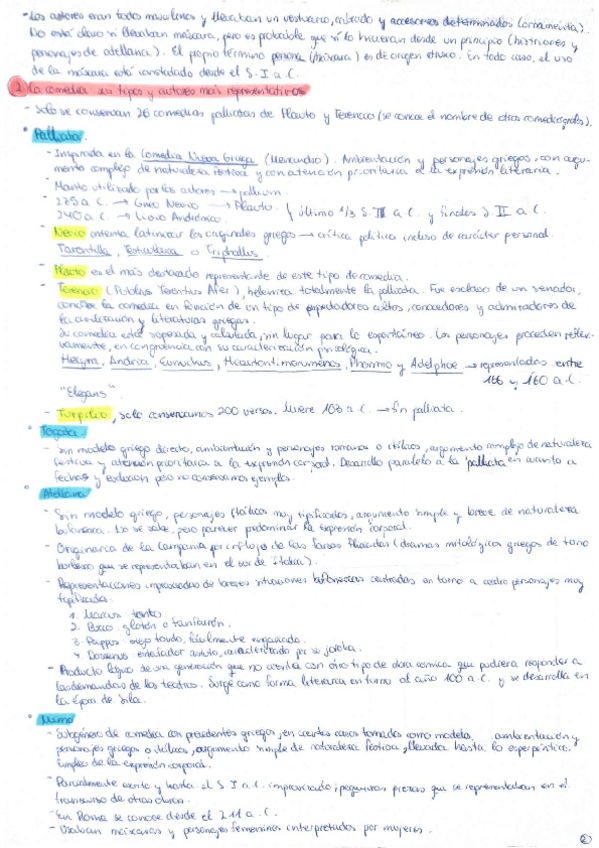 - Los actores eran todos masculinos y llevaban un vestuario, calzado y accesorios determinados (ornamenta).
No está claro si llevaban máscara, pero es probable que sí lo hicieran desde un principio (histriones y
personajes de atellana). El propio término persona (máscara) es de origen etrusco. En todo caso, el uso
de la máscara está constatado desde el S. I a.C.
2 La comedia: sus tipos y autores más representativos
- Solo se conservan 26 comedias palliatas de Plauto y Terencio (se conoce el nombre de otros comediógrafos).
• Palliata.
- Inspirada en la Comedia Nueva Griega (Menandro). Ambientación y personajes griegos, con argu-
mento complejo de naturaleza festiva y con atención prioritaria a la expresión literaria.
- Manto utilizado por los actores → pallium.
- 235 a.C. → Gneo Nevio → Plauto. último 1/3 S. III a.C. y finales S. II a.C.
240 a.C. → Livio Andrónico
- Nevio intenta latinizar los originales griegos → crítica política incluso de carácter personal.
Tarentilla, Testicularia o Triphallus.
- Plauto es el más destacado representante de este tipo de comedia.
- Terencio (Publius Terentius Afer), heleniza totalmente la palliata. Fue esclavo de un senador,
concibe la comedia en función de un tipo de espectadores cultos, conocedores y admiradores de
la civilización y literatura griegas.
Su comedia está sopesada y calculada, sin lugar para lo espontáneo. Los personajes proceden reflexi-
vamente, en congruencia con su caracterización psicológica.
Hecyra, Andria, Eunuchus, Heautontimorumenos, Phormio y Adelphoe → representadas entre
166 y 160 a.C.
"Elegans".
- Turpilio, solo conservamos 200 versos. Muere 103 a.C. → fin palliata.
• Togata.
- Sin modelo griego directo, ambientación y personajes romanos o itálicos, argumento complejo de naturaleza
festiva y atención prioritaria a la expresión corporal. Desarrollo paralelo a la palliata en cuanto a
fechas y evolución pero no conservamos ejemplos.
• Atellana
- Sin modelo griego, personajes itálicos muy tipificados, argumento simple y breve de naturaleza
bufonesca. No se sabe, pero parece predominar la expresión corporal.
- Originaria de la Campania por influjo de las farsas fliacidas (dramas mitológicos griegos de tono
burlesco que se representaban en el sur de Italia).
- Representaciones improvisadas de breves situaciones bufonescas centradas en torno a cuatro personajes muy
tipificados.
1. Maccus tonto
2. Bucco glotón o fanfarrón.
3. Pappus viejo tonto, fácilmente engañado.
4. Dossenus estafador astuto, caracterizado por su joroba.
- Producto lógico de una generación que no contaba con otro tipo de obra cómica que pudiera responder a
las demandas de los teatros. Surge como forma literaria en torno al año 100 a.C. y se desarrolla en
la época de Sila.
• Mimo
- Subgénero de comedia con precedentes griegos, en ciertos casos tomados como modelo, ambientación y
personajes griegos o itálicos, argumento simple de naturaleza festiva, llevada hasta lo esperpéntico.
Empleo de la expresión corporal.
- Parcialmente escrito y hasta el S. I a.C. improvisado; pequeñas piezas que se representaban en el
transcurso de otras obras.
- En Roma se conoce desde el 211 a.C.
- Usaban máscaras y personajes femeninos interpretados por mujeres.
2